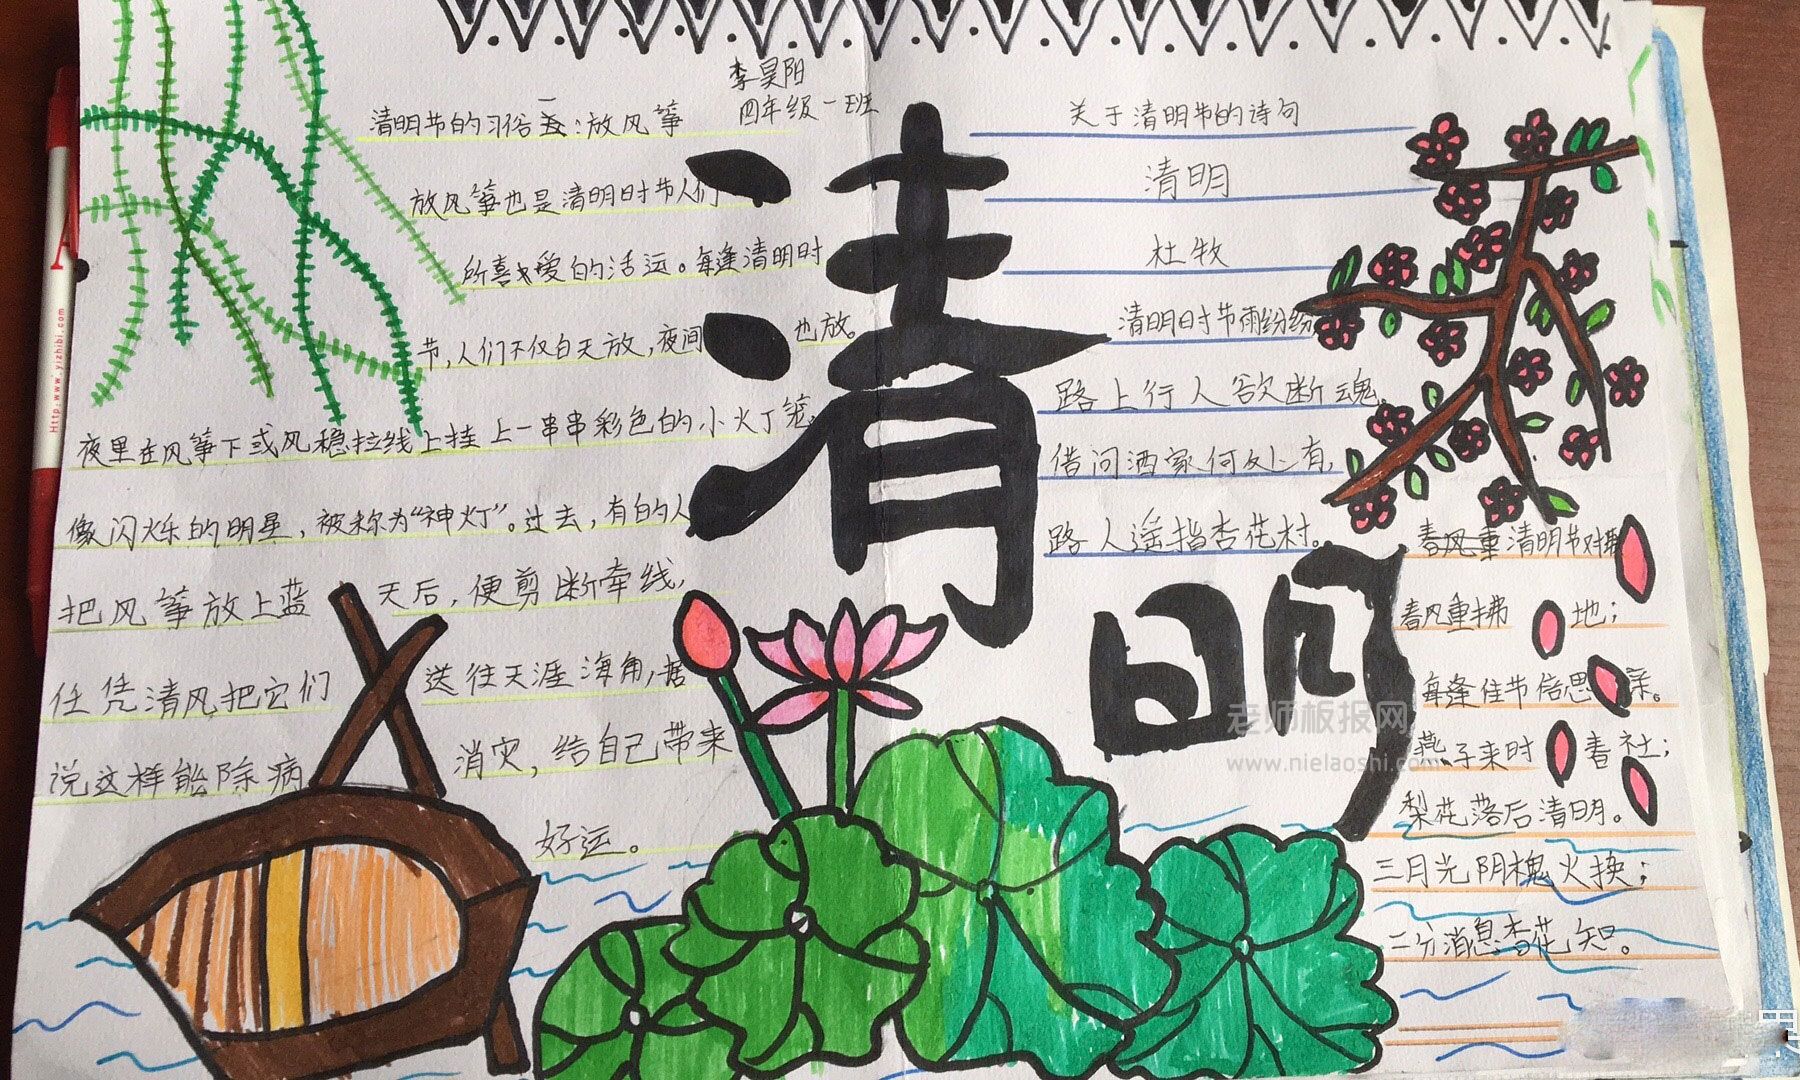 李昊阳
四年级一班
清明节的习俗二:放风筝
放风筝也是清明时节人们
所喜爱的活运。每逢清明时
节,人们不仅白天放,夜间也放。
夜里在风筝下或风稳拉线上挂上一串串彩色的小火丁笼,
像闪烁的明星,被称为“神灯”。过去,有的人
把风筝放上蓝天后,便剪断牵线,
任凭清风把它们送往天涯海角,据
说这样能除病消灾,给自己带来
好运。
清明
关于清明节的诗句
清明
杜牧
清明时节雨纷纷
路上行人欲断魂,
借问酒家何处有,
路人遥指杏花村。
春风重清明节对拂
春风重拂地;
每逢佳节倍思亲。
燕子来时春社;
梨花落后清明。
三月光阴槐火换;
二分消息杏花知。
老师板报网
www.nielaoshi.com
Http:www.yizhibi.com